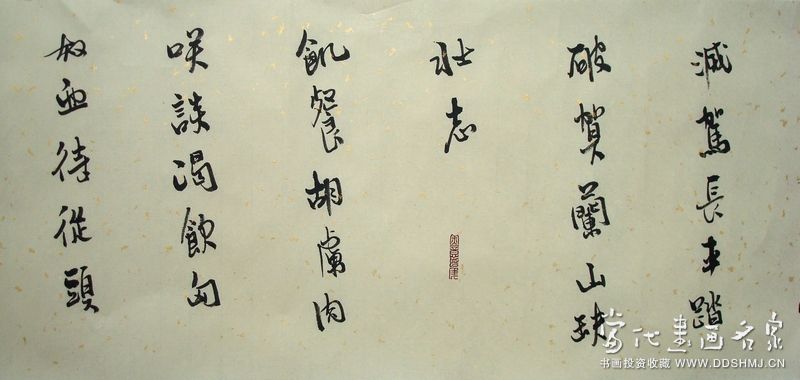 滅駕長車踏
破賀蘭山缺
壯志
飢餐胡虜肉
笑談渴飲匈
奴血待從頭
當代書畫名家
书画投资收藏 WWW.DDSHMJ.CN